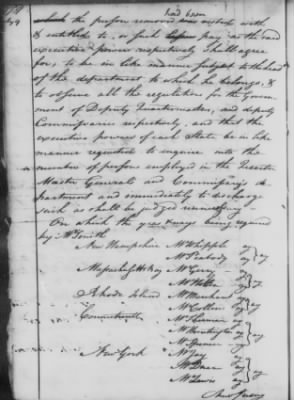 which the person removed was vested with
& entitled to, or such pay, as the said
executive power respectively shall agree
for; to be in like manner subject to the head
of the department to which he belongs, &
to observe all the regulations for the Govern-
ment of Deputy Quartermaster, and deputy
Commissaries respectively, and that the
executive powers of each State be in like
manner requested to enquire into the
number of persons employed in the Quarter
Master Generals and Commissary's de-
partment and immediately to discharge
such as shall be judged unnecessary
On which the yeas & nays being required
by Mr Smith
New Hampshire Mr Whipple ay
Mr Peabody ay } ay
Massachusetts Bay Mr Gerry ay
Mr Holten ay } ay
Rhode Island Mr Marchant ay
Mr Collins ay } ay
Connecticut Mr Sherman ay
Mr Huntington ay } ay
Mr Spencer ay
New York Mr Jay ay
Mr Duane ay } ay
Mr Lewis ay
New Jersey